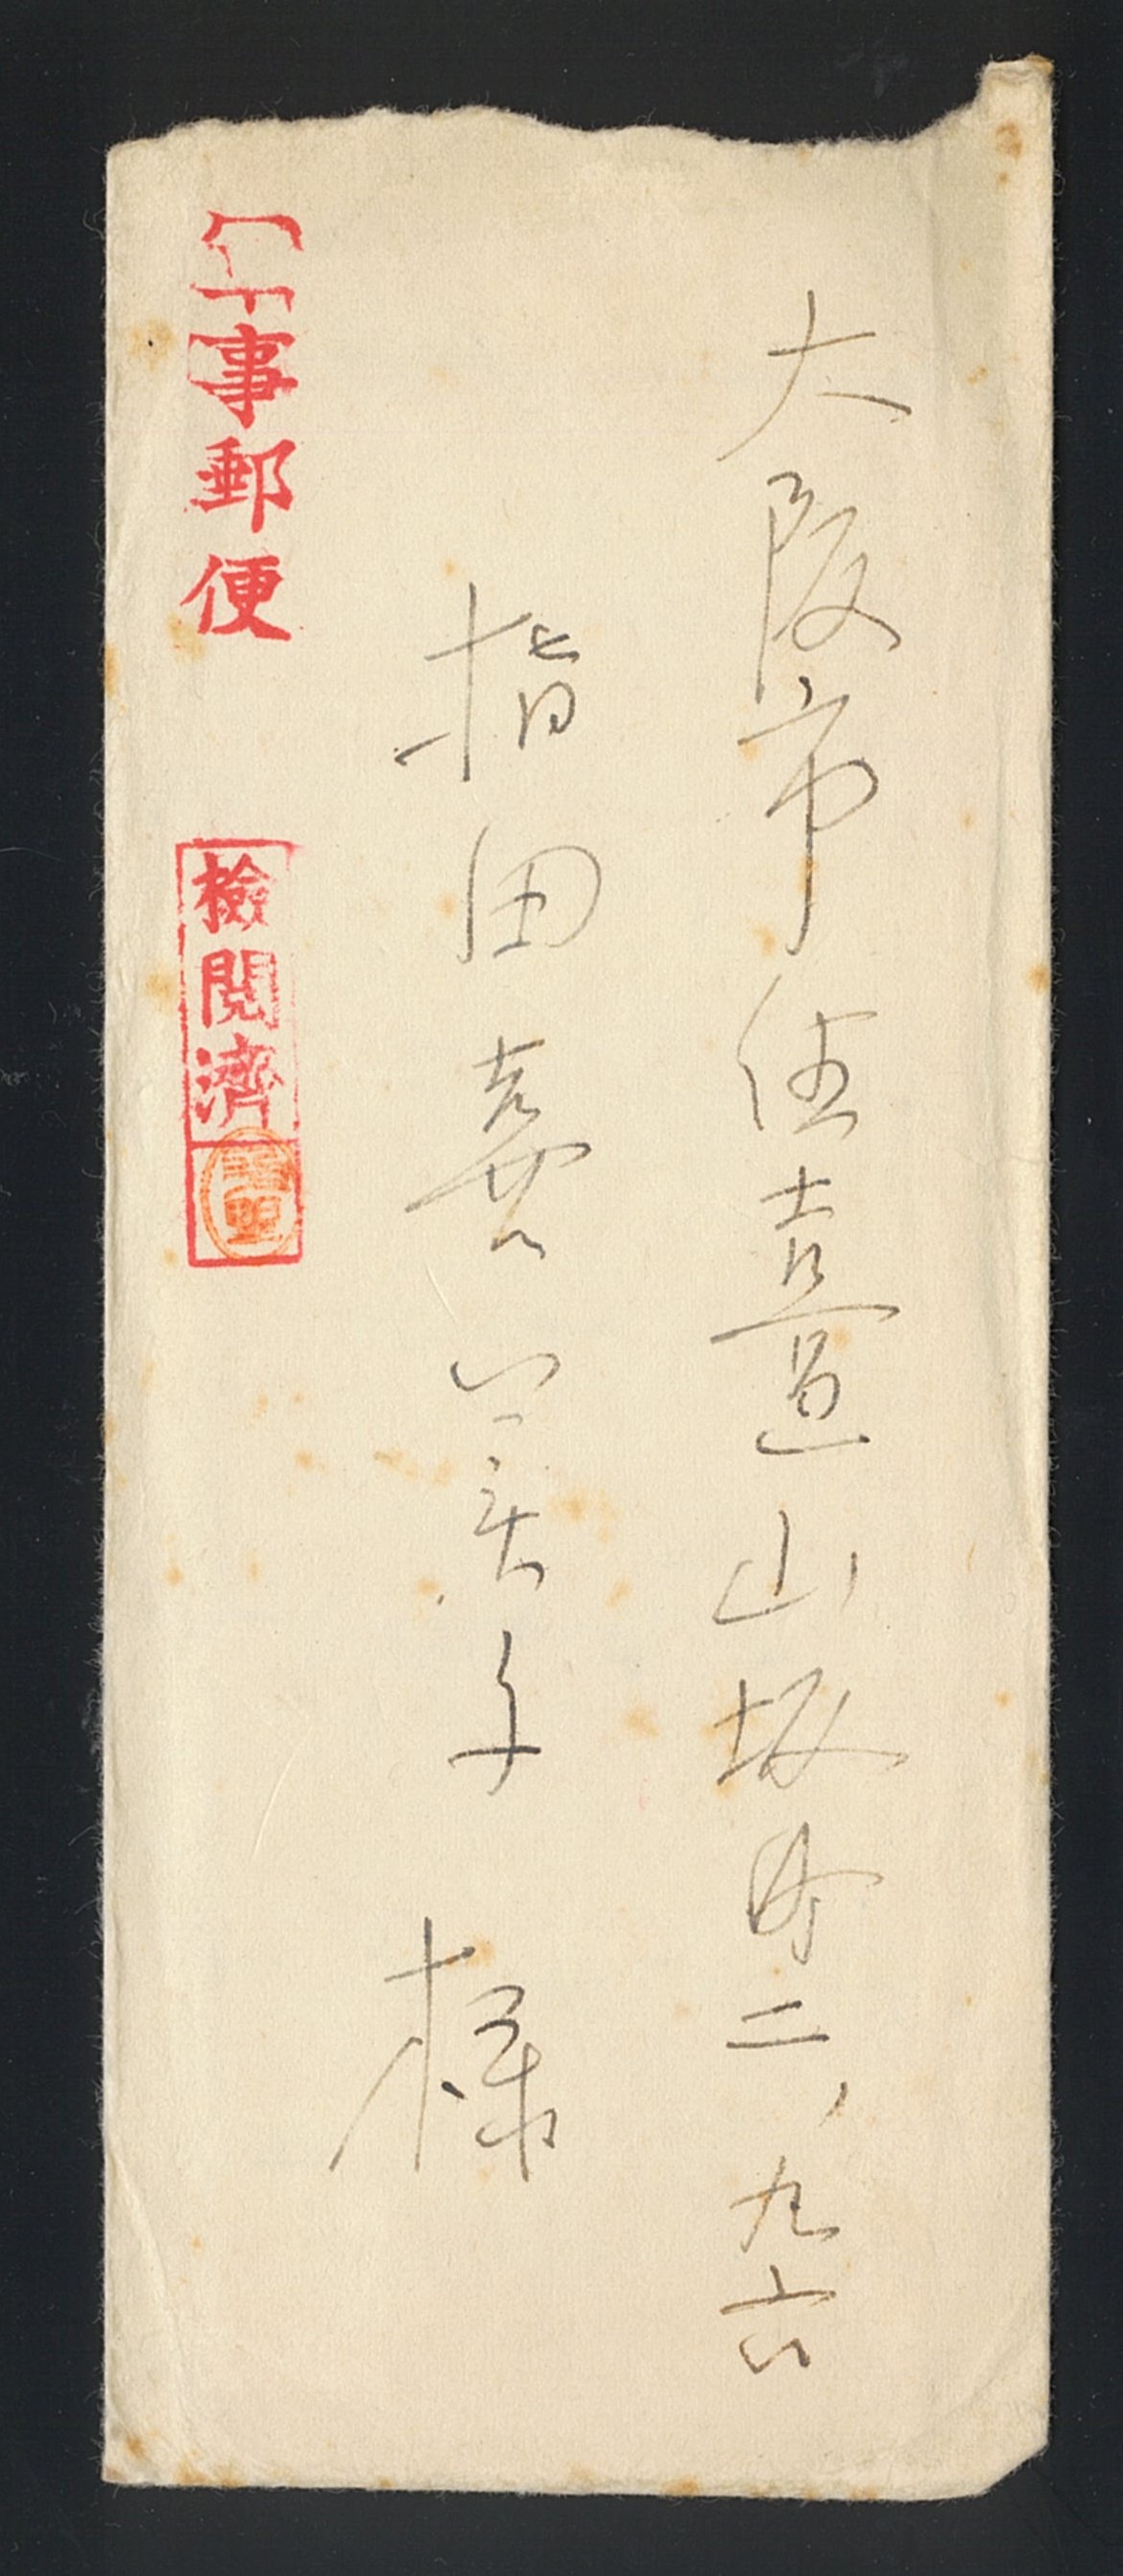 大阪市住吉區山坂町二ノ九六
指田 子 様
軍事郵便
檢閲濟